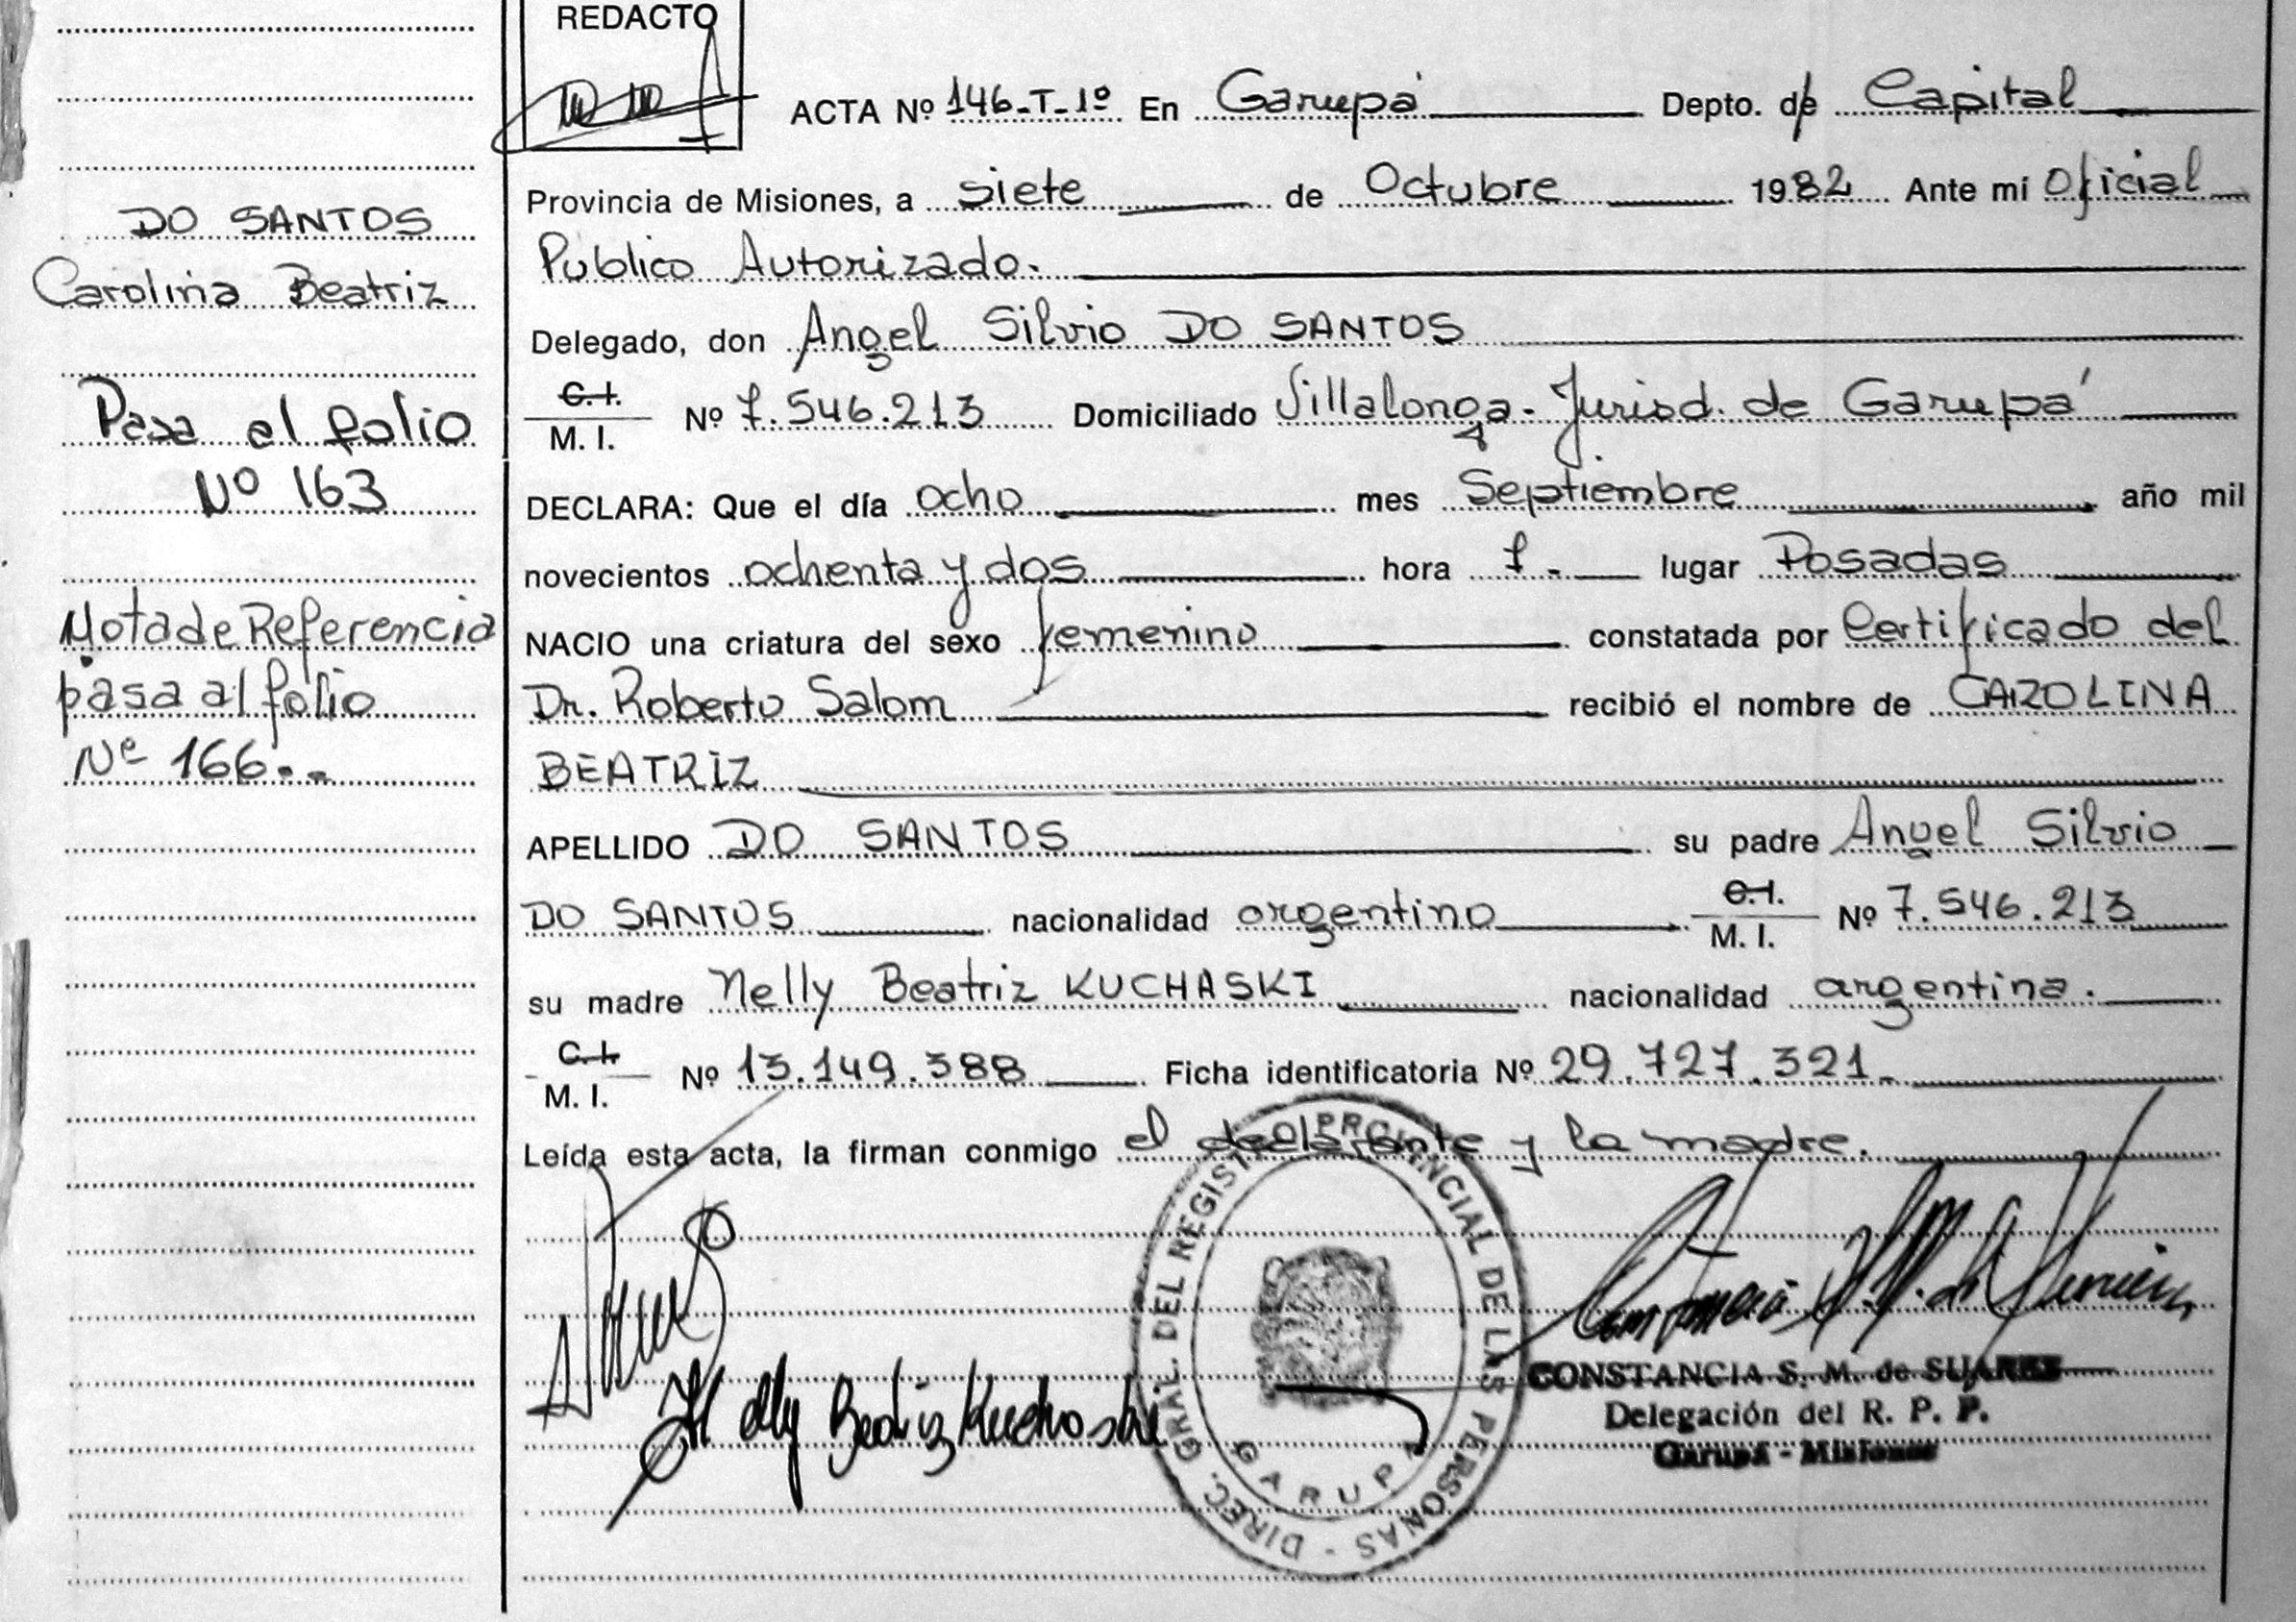 REDACTO
ACTA Nº 146-T-1º En Garupá Depto. de Capital
Provincia de Misiones, a siete de Octubre 1982 Ante mí Oficial
Publico Autorizado.
Delegado, don Angel Silvio DO SANTOS
C.I.
M. I. Nº 7.546.213 Domiciliado Villalonga- Jurisd. de Garupá
DECLARA: Que el día ocho mes Septiembre año mil
novecientos ochenta y dos hora 7.- lugar Posadas
NACIO una criatura del sexo femenino constatada por Certificado del
Dr. Roberto Salom recibió el nombre de CAROLINA
BEATRIZ
APELLIDO DO SANTOS su padre Angel Silvio
DO SANTOS nacionalidad argentino C.I. M. I. Nº 7.546.213
su madre Nelly Beatriz KUCHASKI nacionalidad argentina.
C.I.
M. I. Nº 13.149.388 Ficha identificatoria Nº 29.727.321.-
Leída esta acta, la firman conmigo el declarante y la madre.
DO SANTOS
Carolina Beatriz
Pasa al folio
Nº 163
Nota de Referencia
pasa al folio
Nº 166.-
Nelly Beatriz Kuchaski
DIREC. GRAL. DEL REGISTRO PROVINCIAL DE LAS PERSONAS -
GARUPA
CONSTANCIA S. M. de SUAREZ
Delegación del R. P. P.
Garupá - Misiones